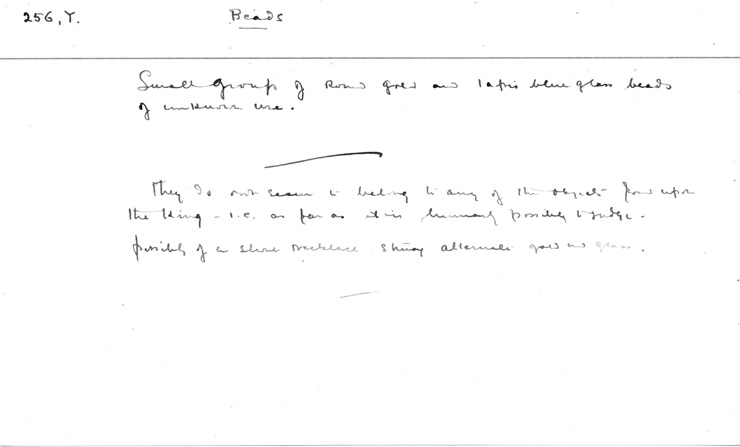 256, Y.
Beads
Small group of round gold and lapis blue glass beads
of unknown use.
They do not seem to belong to any of the objects found upon
the King - i.e. as far as it is humanly possible to judge.
possibly of a short necklace strung alternate gold and glass.